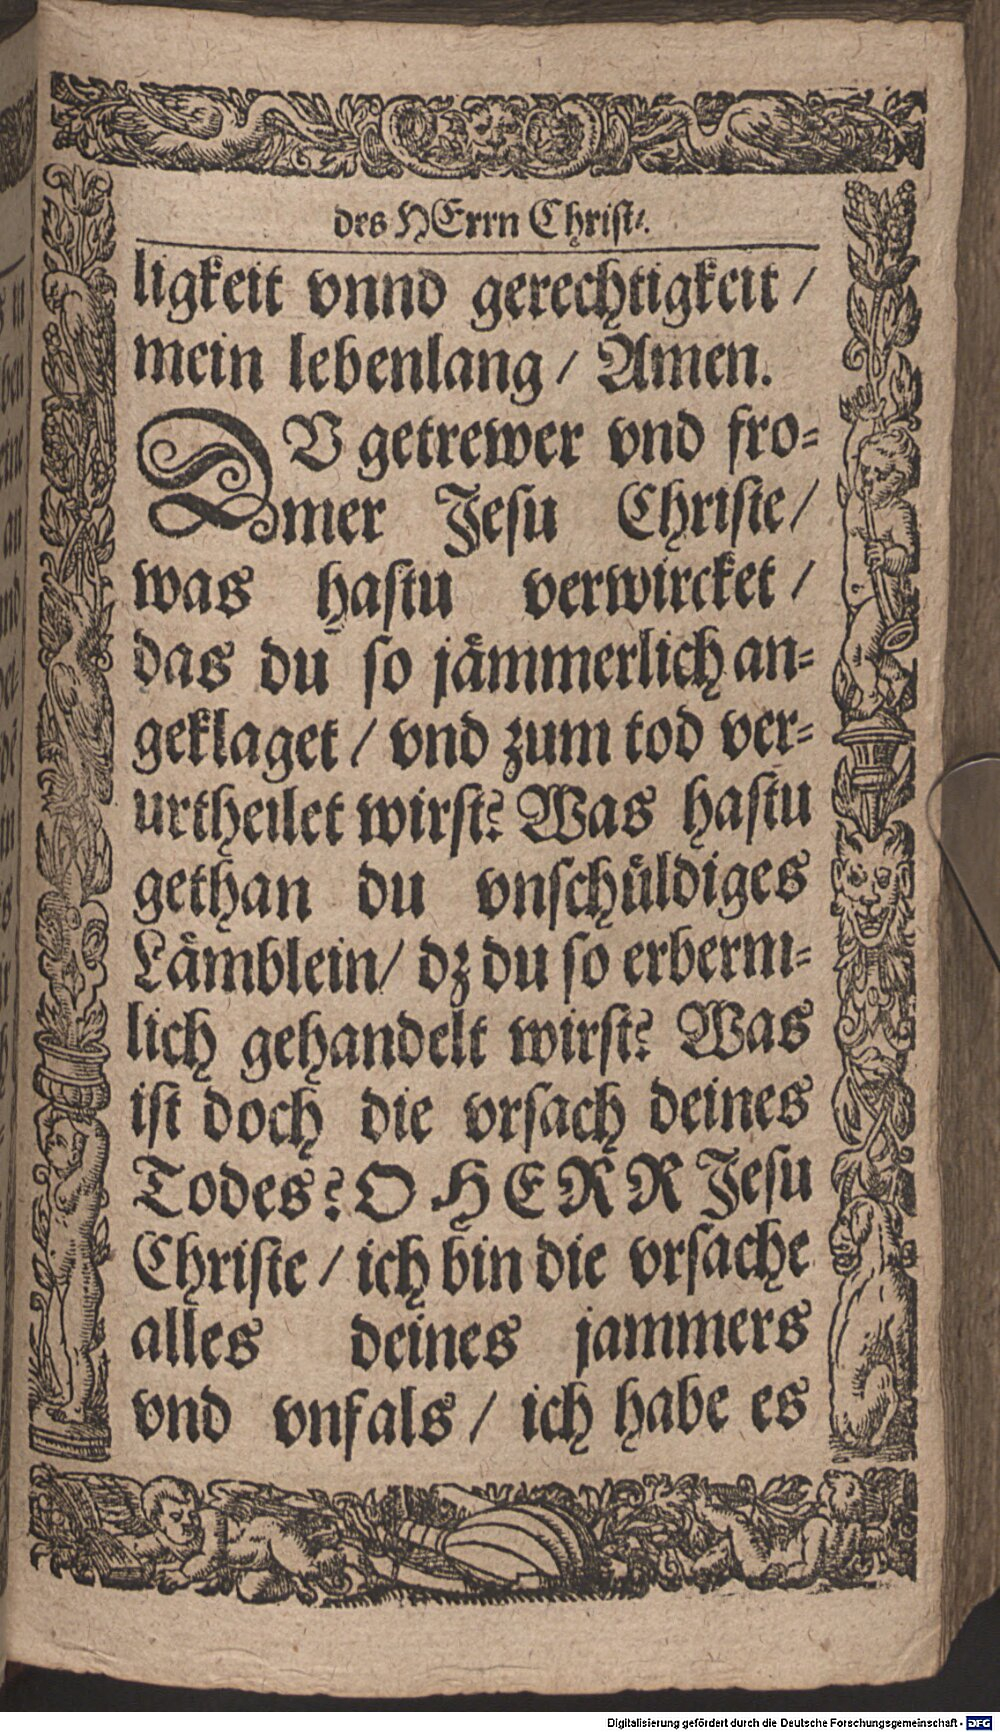 des HErrn Christ.
ligkeit vnnd gerechtigkeit /
mein lebenlang / Amen.
DV getrewer vnd fro-
mer Jesu Christe /
was hastu verwircket /
das du so jämmerlich an-
geklaget / vnd zum tod ver-
urtheilet wirst? Was hastu
gethan du vnschüldiges
Lämblein / dz du so erberm-
lich gehandelt wirst? Was
ist doch die vrsach deines
Todes? O HERR Jesu
Christe / ich bin die vrsache
alles deines jammers
vnd vnfals / ich habe es
Digitalisierung gefördert durch die Deutsche Forschungsgemeinschaft - DFG